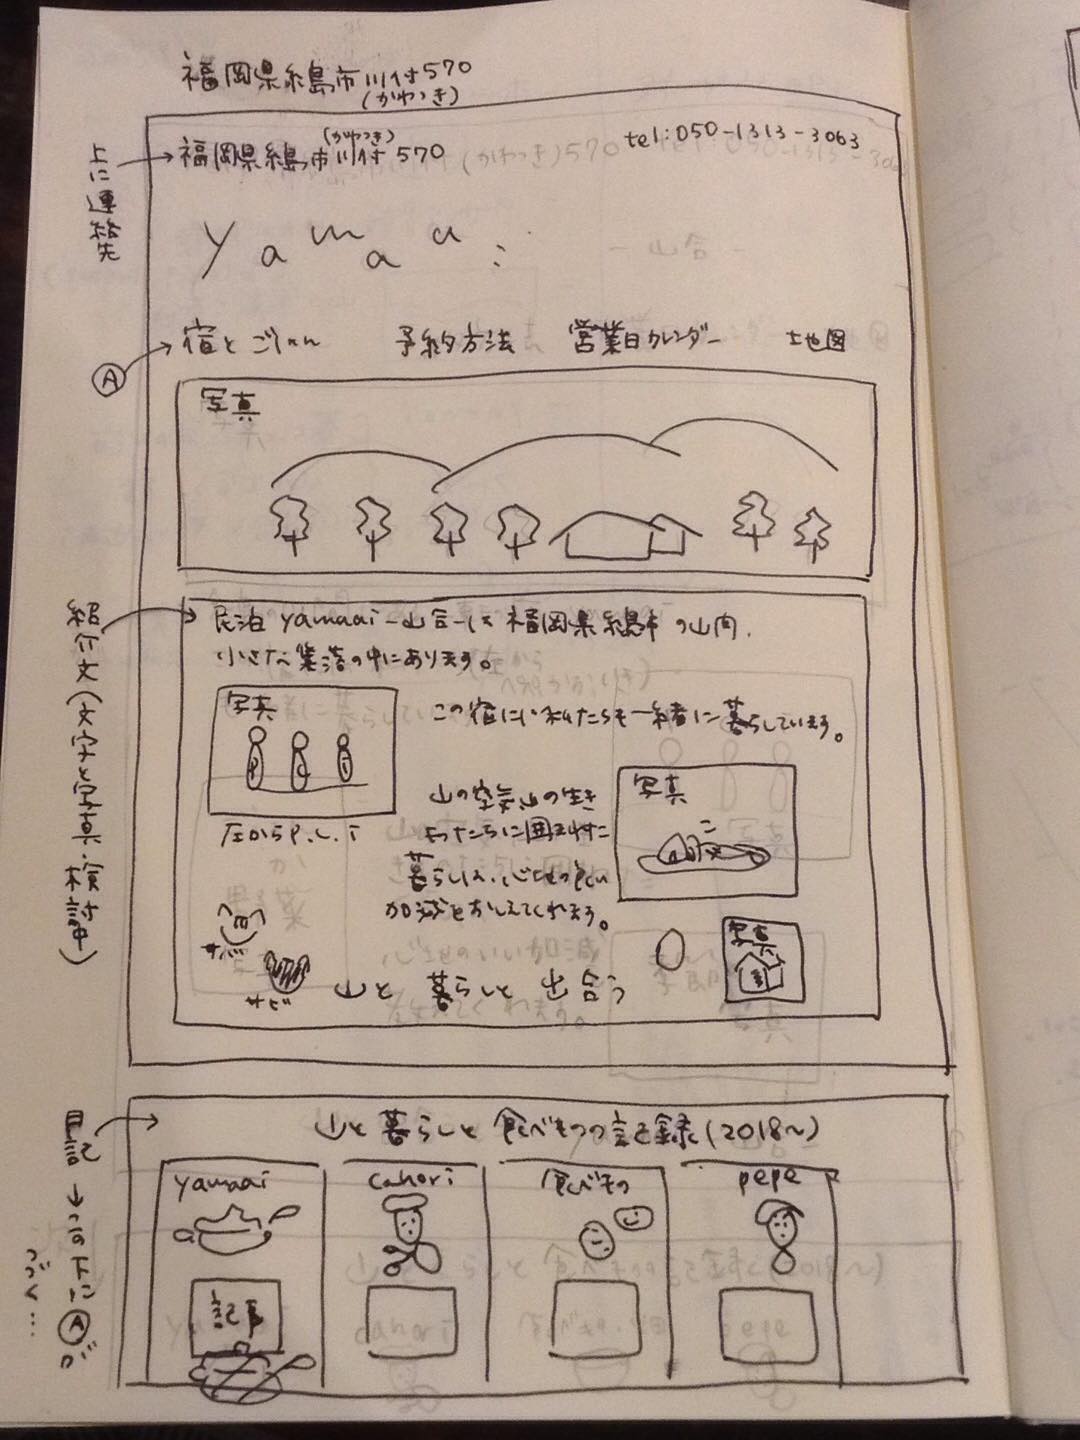 福岡県糸島市川付570
(かわつき)
上に連絡先
福岡県糸島市川付570
(かわつき)
tel:050-1313-3063
yamaai
Ⓐ
宿とごはん 予約方法 営業日カレンダー 地図
写真
紹介文(文字と写真、検討中)
民泊 yamaai -山合- は 福岡県糸島市の山間、
小さな集落の中にあります。
写真
この宿には私たちも一緒に暮らしています。
左からP.L.T
山の空気、山の生き
ものたちに囲まれた
暮らしは、心地のいい
加減をおしえてくれます。
写真
サビ
写真
山と 暮らしと 出合う
日記
山と暮らしと食べものの記録(2018〜)
yamaai cahori 食べもの pepe
記事
→この下にⒶが
つづく…